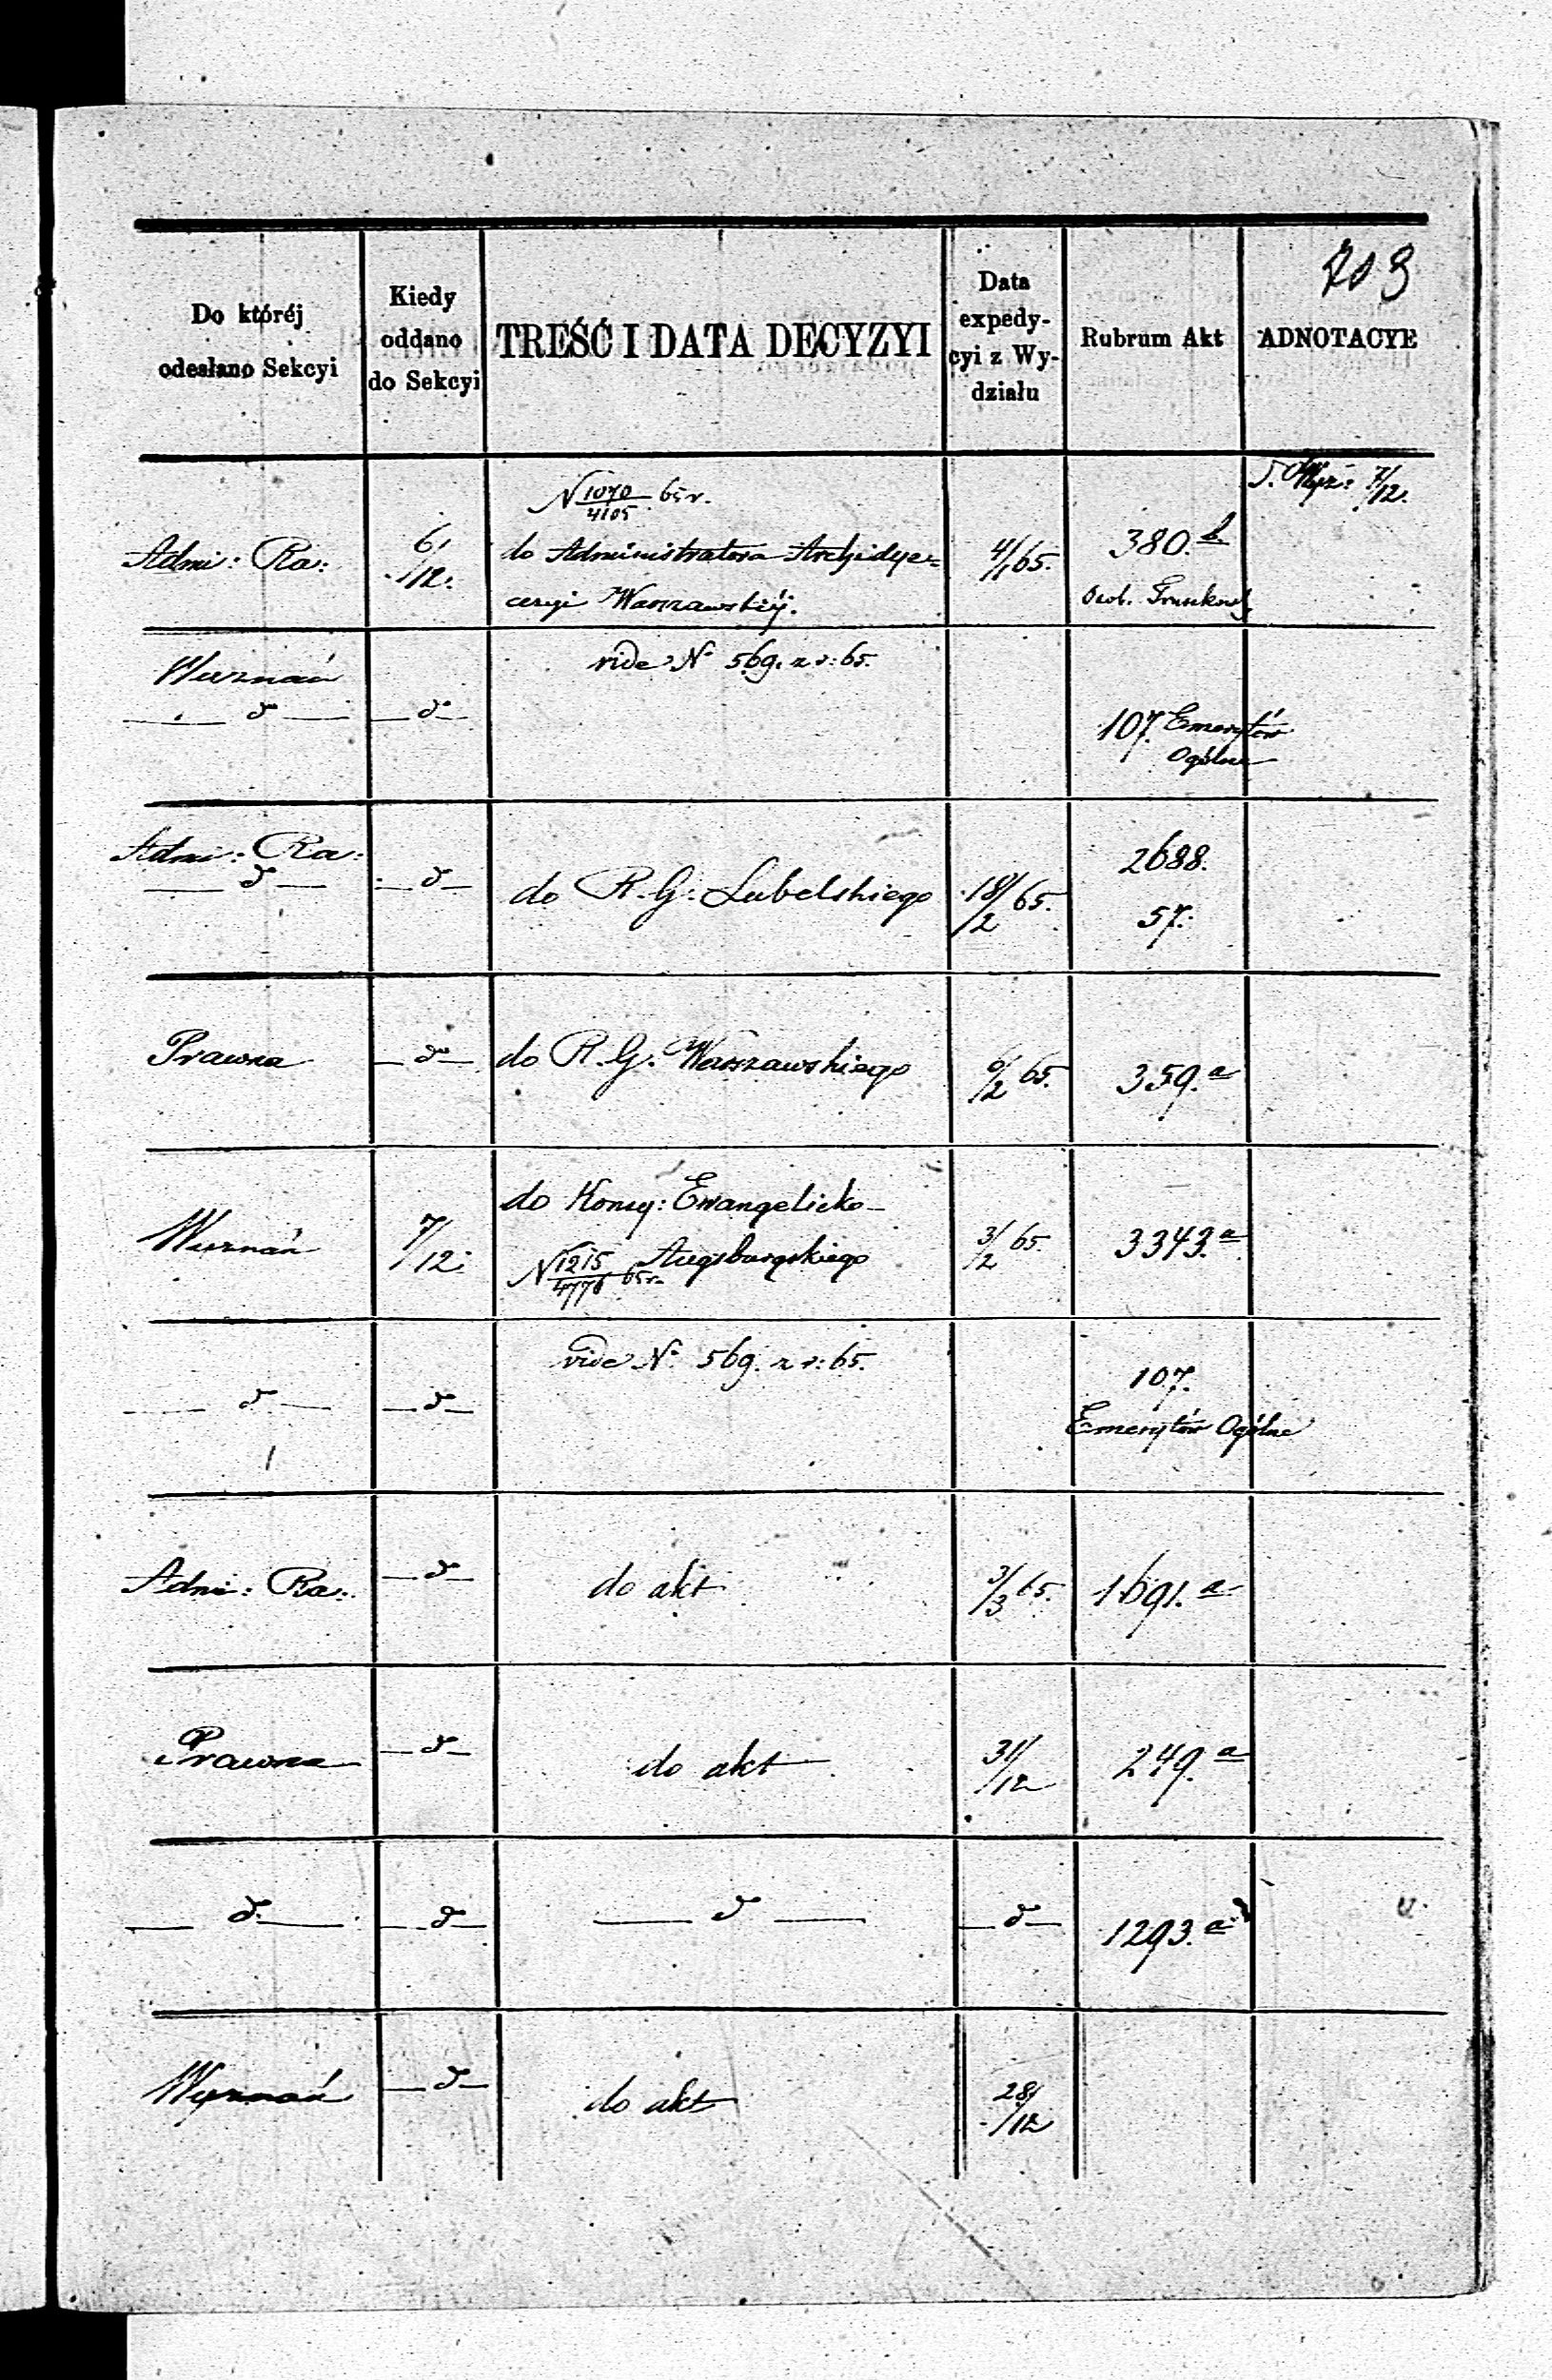 703
Do któréj
odesłano Sekcyi
Kiedy
oddano
do Sekcyi
TREŚĆ I DATA DECYZYI
Data
expedy-
cyi z Wy-
działu
Rubrum Akt
ADNOTACYE
7/12.
Admi: Ra:
6/12.
N 1070/4105 65 r.
do Administratora Archidye=
cezyi Warszawskiéj.
4/1 65.
380. b
Osob.
Wyznań
— d —
— d —
vide N° 569. z r: 65.
107. Emerytów
Ogólne
Admi: Ra:
— d —
— d —
do R. G. Lubelskiego
18/2 65.
2688.
57.
Prawna
— d —
do R. G. Warszawskiego
6/2 65.
359. a
Wyznań
7/12.
do Konsy: Ewangelicko-
Augsburgskiego
N 1215/4776 65 r.
3/2 65.
3343. a
— d —
— d —
vide N° 569. z r: 65.
107.
Emerytów Ogólne
Admi: Ra:
— d —
do akt
3/3 65.
1691. a
Prawna
— d —
do akt
31/12
249. a
— d —
— d —
— d —
— d —
1293. a
Wyznań
— d —
do akt
28/12